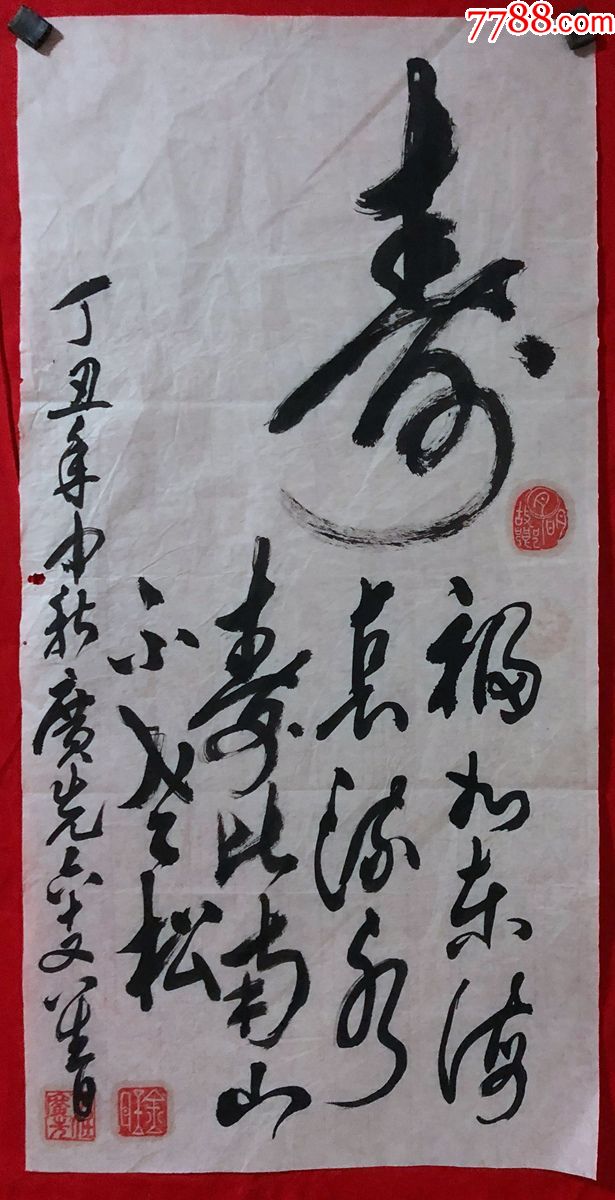 7788.com
寿
福如东海
长流水
寿比南山
不老松
丁丑年中秋廣先六十又八書